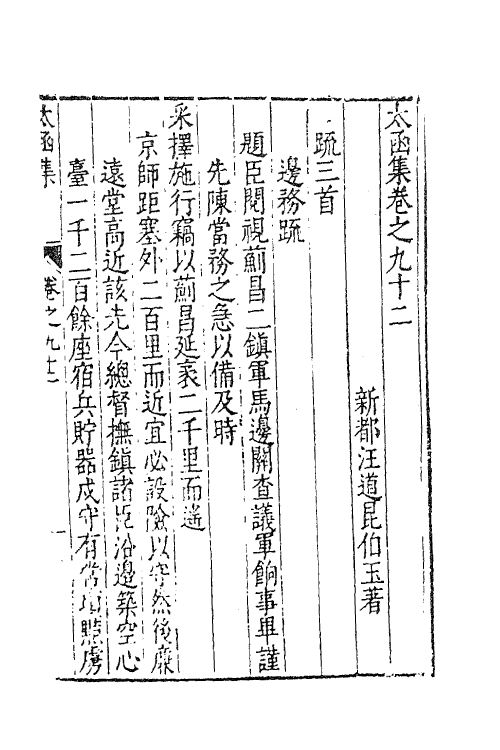 太函集卷之九十二
新都汪道昆伯玉著
疏三首
邊務疏
題臣閱視薊昌二鎮軍馬邊關查議軍餉事畢謹
先陳當務之急以備及時
采擇施行竊以薊昌延袤二千里而遙
京師距塞外二百里而近宜必設險以守然後麋
遠堂高近該先今總督撫鎮諸臣沿邊築空心
臺一千二百餘座宿兵貯器戍守有常
虜
太函集
卷之九十二
一